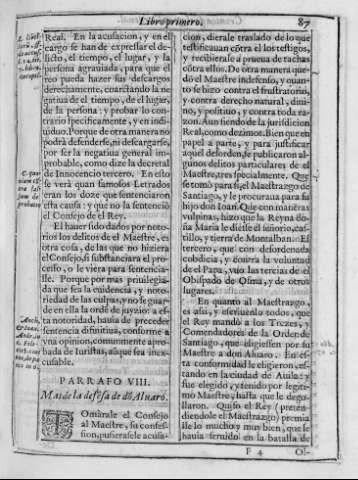 Libro primero.
87
Real. En la acusacion, y en el
cargo se han de expressar el de-
licto, el tiempo, el lugar, y la
persona agrauiada, para que el
reo pueda hazer sus descargos
derechamente, coarctando la ne
gatiua de el tiempo, de el lugar,
de la persona: y probar lo con-
trario specificamente, y en indi
uiduo. Porque de otra manera no
podrá defenderse, ni descargarse,
por ser la negatiua general im-
probable, como dize la decretal
de Innocencio tercero. En esto
se verá quan famosos Letrados
eran los doze que sentenciaron
esta causa: y que no la sentenció
el Consejo de el Rey.
El hauer sido dados por noto-
rios los delitos de el Maestre, es
otra cosa, de las que no hiziera
el Consejo, si substanciara el pro-
cesso, o le viera para sentenciar-
lle. Porque por mas priuilegia-
da que sea la euidencia, y noto-
riedad de las culpas, y no se guar-
de en ella la ordē de juyzio: a es-
ta notoriedad, hasta de hauerse
sentencia difinitiua, conforme a
vna opinion, comunmente aproba-
da de Iuristas, aũque sea inex-
cusable.
PARRAFO VIII.
Mas de la defẽsa de dõ Aluaro.
Omitirale el Consejo
al Maestre, su confes-
sion, pusierasele acusa-
cion, diérale traslado de lo que
testificauan cōtra el los testigos,
y recibierase a prueua de tachas
cōtra ellos. De otra manera que-
dó el Maestre indefenso, y quan-
to se hizo contra el frustratorio,
y contra derecho natural, diui-
no, y positiuo, y contra toda ra-
zon. Aun siendo de la jurisdicion
Real, como dezimos. Bien que en
papel a parte, y para justificar
aquel desorden, se publicaron al-
gunos delitos particulares de el
Maestre, tres specialmente. Que
se tomó para si, el Maestrazgo de
Santiago, y le procuraua para su
hijo don Iuan. Que con mañeras
vulpinas, hizo que la Reyna do-
ña Maria le diesse el señorio, cas-
tillo, y tierra de Montalban. El
tercero, que con desordenada
cobdicia, y contra la voluntad
de el Papa, vso las tercias de el
Obispado de Osma, y de otros
lugares.
En quanto al Maestrazgo,
es assi, y escriuenlo todos, que
el Rey mandó a los Trezes, y
Comendadores de la Orden de
Santiago, que eligiessen por su
Maestre a don Aluaro. En es-
ta conformidad le eligieron, es-
tando en la ciudad de Auila:
fue elegido, y tenido por legiti-
mo Maestre, hasta que le dego-
llaron. Quiso el Rey (preten-
diendole el Maestrazgo) premia
lle lo mucho, y muy bien, que le
hauia seruido en la batalla de
F 4
Ol-